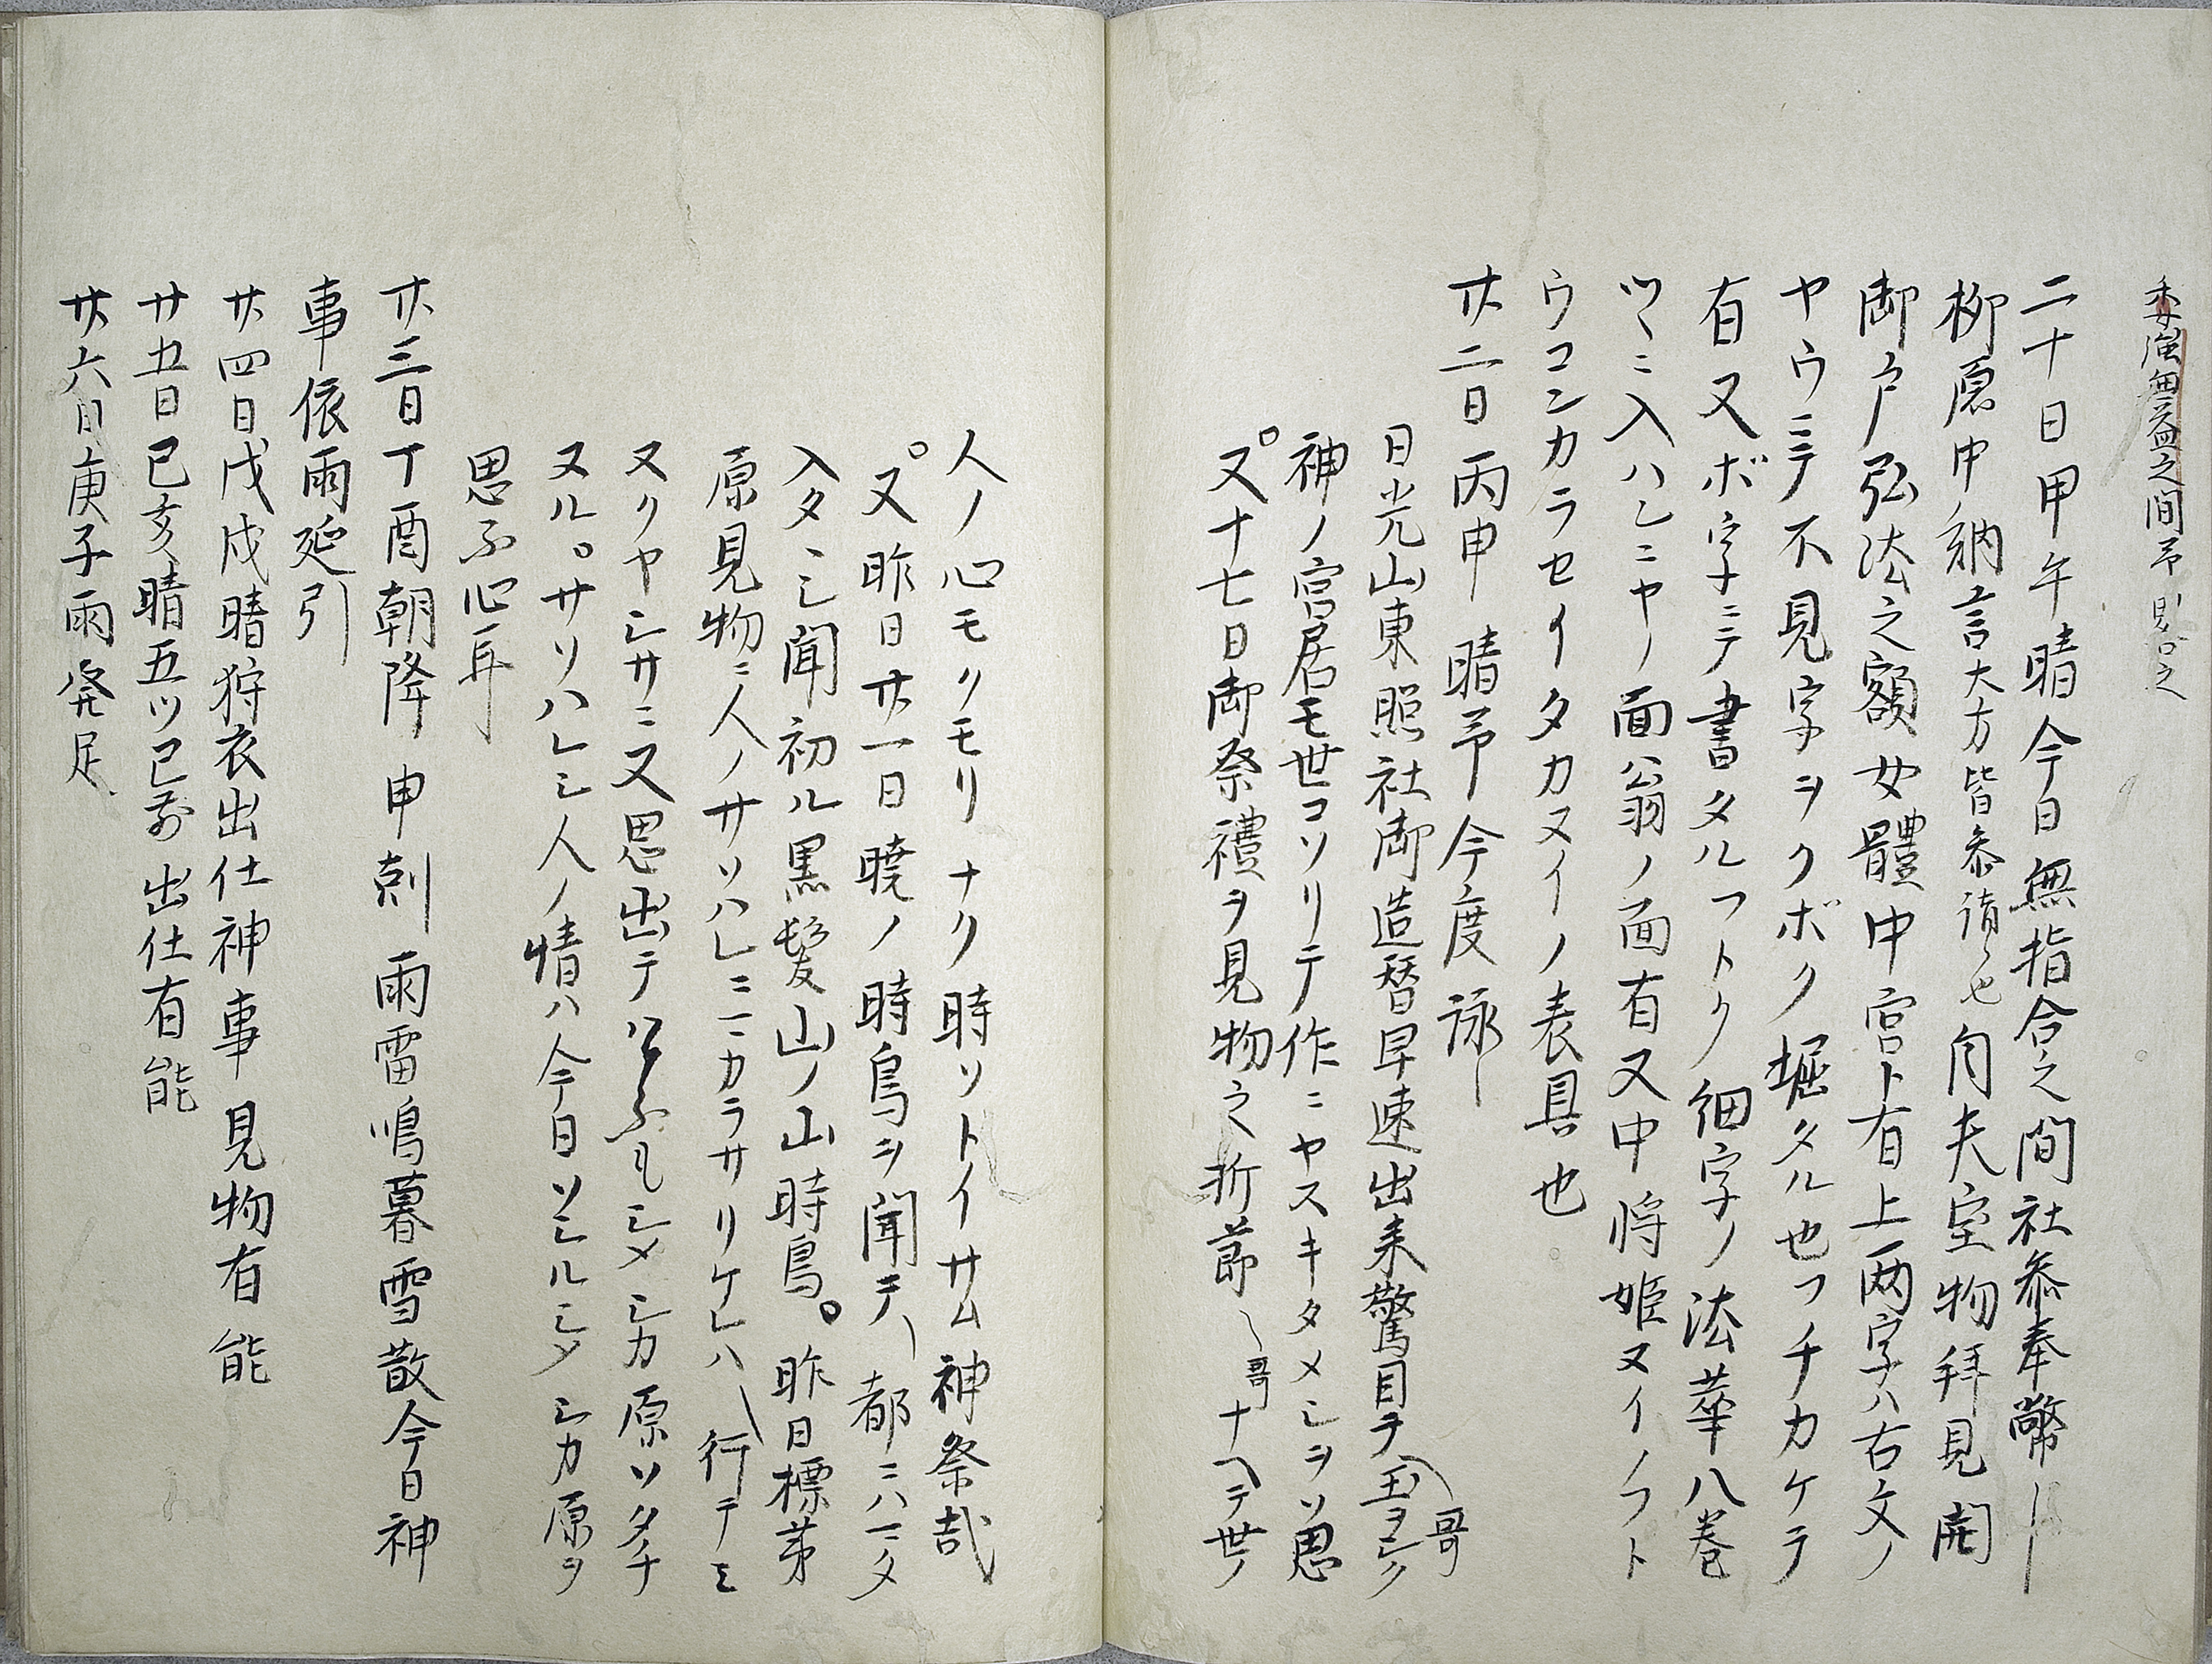 委溢無益之間予
二十日甲午晴今日無指合之間社参奉幣ーー
柳原中納言大方皆参詣也内夫室物拝見開
御戸弘法之額女體中宮ト有上两字ハ古文ノ
ヤウニテ不見字ヲクボク堀タル也フチカケテ
有又ボ字ニテ書タルフトク細字ノ法華八巻
ツヽニ入ハシニヤノ面ハ翁ノ面有又中将姫ヌイノフト
ウコンカラセイタカヌイノ表具也
廿二日丙申晴予今度詠ー
日光山東照社御造替早速出来驚目テ〽玉ヨシク哥
神ノ宮居モ世コソリテ作ニヤスキタメシヲソ思
又十七日御祭禮ヲ見物之折節〽哥ナヘテ世ノ
人ノ心モクモリナク時ソトイサム神祭哉
又昨日廿一日暁ノ時鳥ヲ聞テ〽都ニハニタ
入タヽシ聞初ル黒髪山ノ山時鳥。昨日標茅
原見物ニ人ノサソハレニニカラサリケレハ〽行テモ
又クヤシサニ又思出テハシメシカ原ソタチ
ヌル。サソハレシ人ノ情ハ今日ソシルシメシカ原ヲ
思ふ心耳
廿三日丁酉朝降申剋雨雷鳴暮雪散今日神
事依雨延引
廿四日戊戌晴狩衣出仕神事見物有能
廿五日己亥晴五ツ已前出仕有能
廿六日庚子雨発足